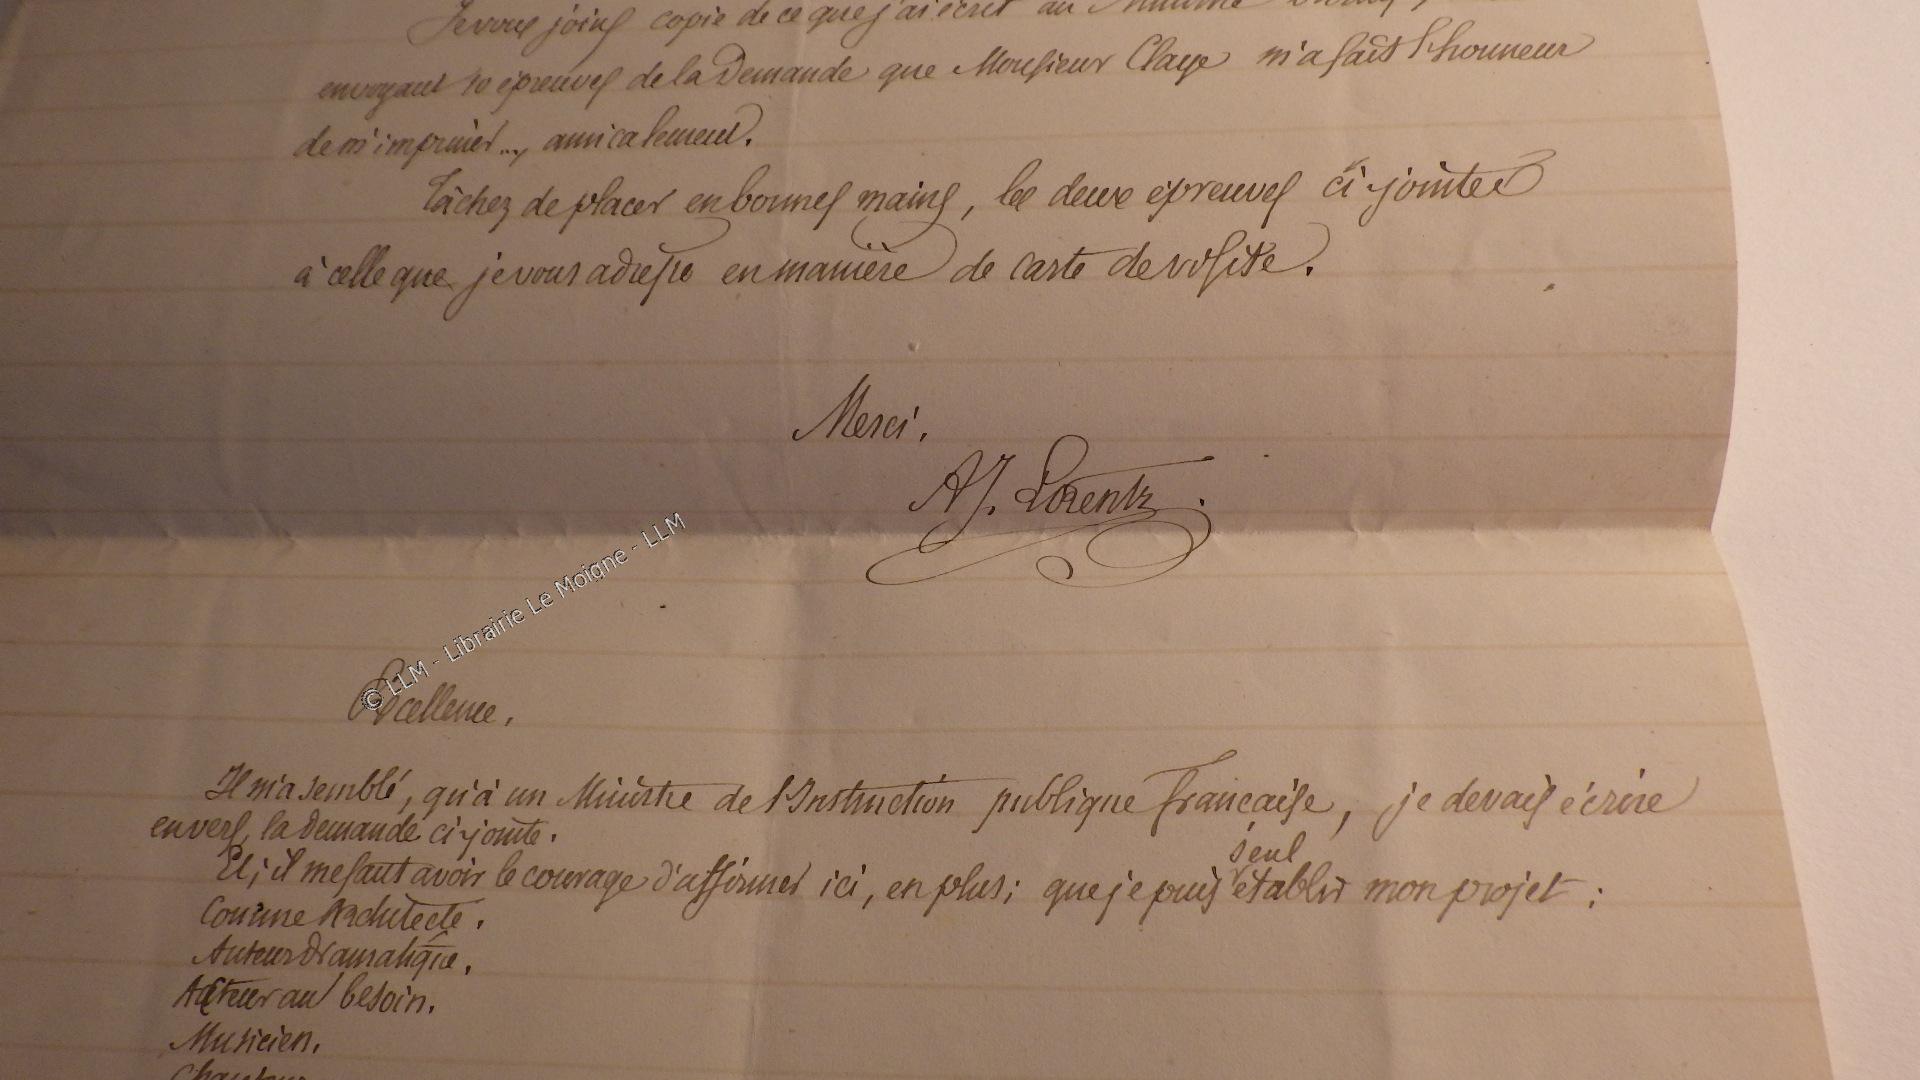 Je vous joins copie de ce que j'ai écrit au Ministre
envoyant 10 épreuves de la Demande que Monsieur Claye m'a fait l'honneur
de m'imprimer..., amicalement.
Tâchez de placer en bonnes mains, les deux épreuves ci-jointes
à celle que je vous adresse en manière de carte de visite.
Merci.
AJ. Lorentz.
© LLM - Librairie Le Moigne - LLM
Excellence.
Il m'a semblé, qu'à un Ministre de l'Instruction publique française, je devais écrire
en vers, la Demande ci-jointe.
seul
Et; il me faut avoir le courage d'affirmer ici, en plus; que je puis établir mon projet:
Comme Architecte.
Auteur Dramatique.
Acteur au besoin.
Musicien.
Chanteur